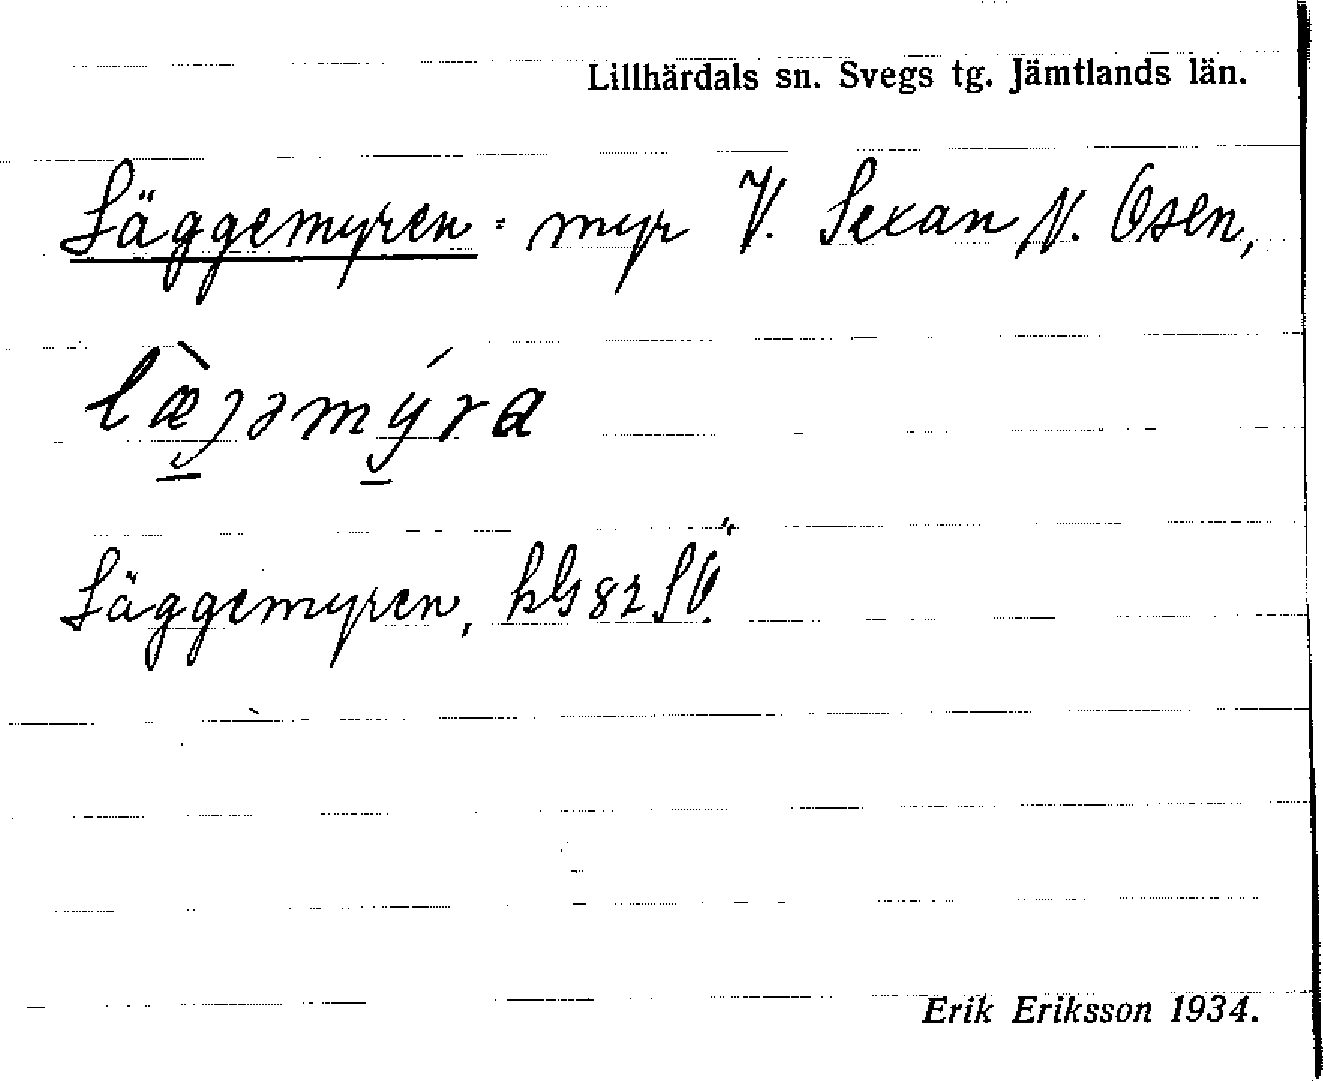 Lillhärdals sn. Svegs tg. Jämtlands län.
Läggemyren = myr V. Sexan N. Osen,
læ̀gəmýra
Läggemyren, hG 82 SV.
Erik Eriksson 1934.